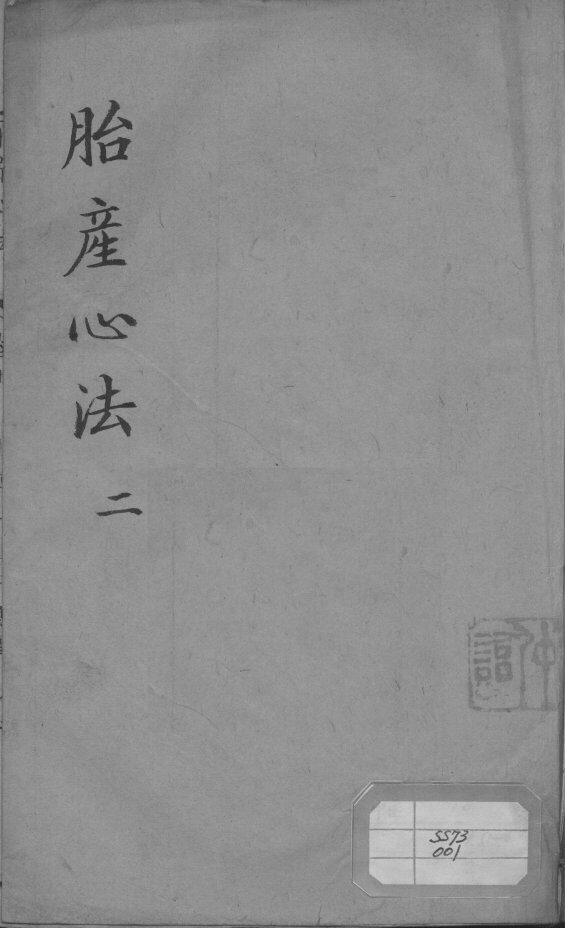 胎產心法
二
SS73
001